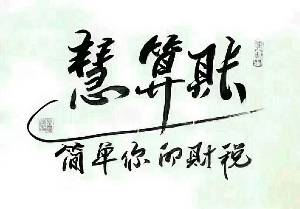 慧算账
简单你的财税